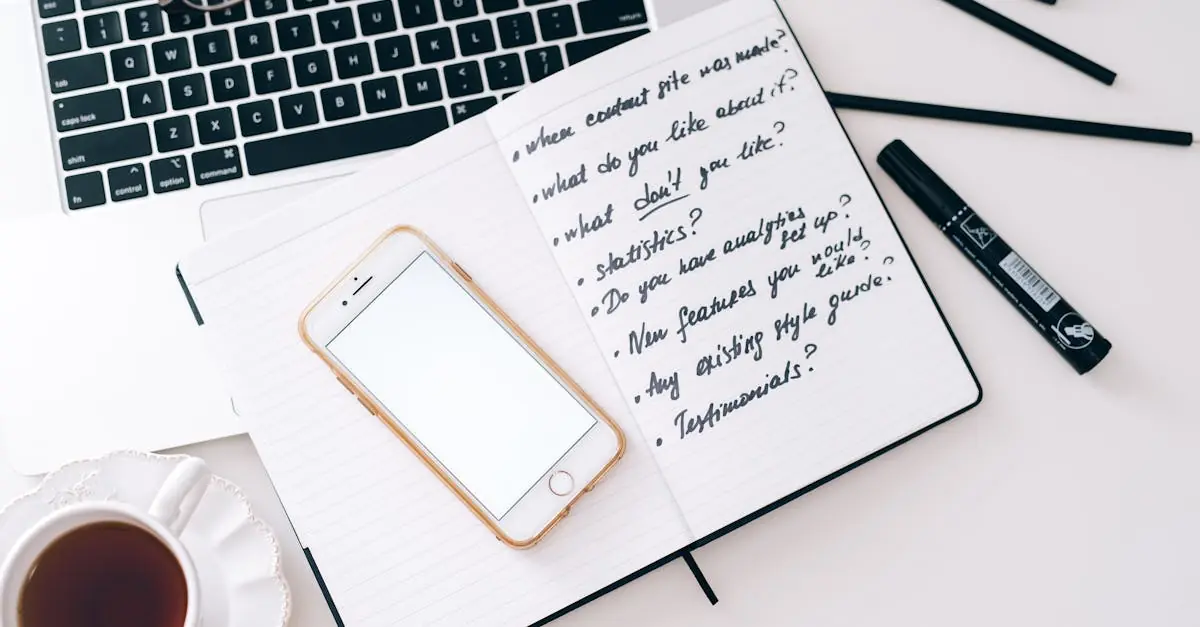 esc
~ `
! 1
@ 2
$ 4
tab
Q W E R T Y U I O P
return
caps lock
A S D F G H J K L
shift
Z X C V B N M < , > . ? /
fn
control
option
command
⌘
• when content site was made?
• what do you like about it?
• what don't you like?
• statistics?
• Do you have analytics
set up?
• New features you would
like?
• Any existing style guide?
• Testimonials?